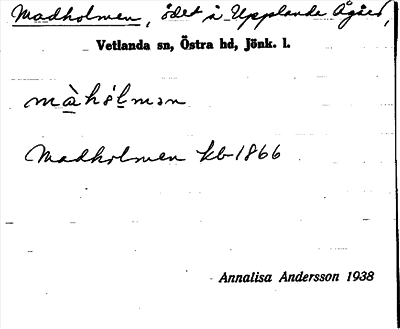 Madholmen, ödet å Upplanda Ägård,
Vetlanda sn, Östra hd, Jönk. l.
màhólmən
Madholmen kb 1866
Annalisa Andersson 1938